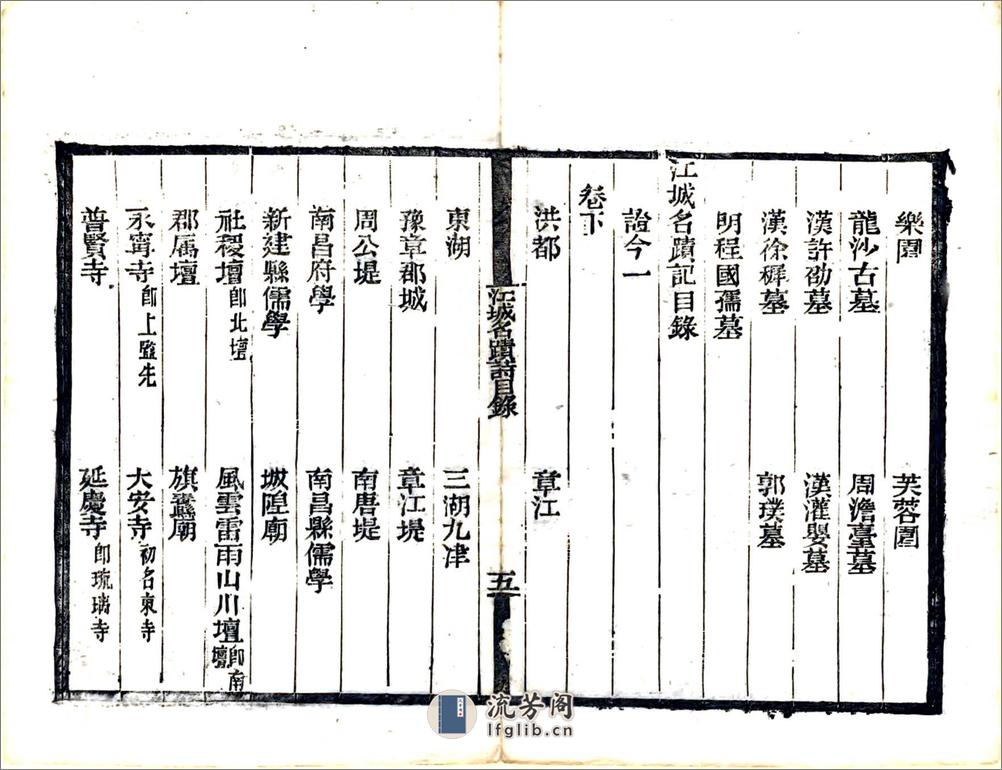 樂園　芙蓉園
龍沙古墓　周澹臺墓
漢許劭墓　漢灌嬰墓
漢徐穉墓　郭璞墓
明程國孺墓
江城名蹟記目錄
證今一
卷下
洪都　章江
江城名蹟詩目錄　五
東湖　三湖九津
豫章郡城　章江堤
周公堤　南唐堤
南昌府學　南昌縣儒學
新建縣儒學　城隍廟
社稷壇即北壇　風雲雷雨山川壇即南壇
郡厲壇　旗纛廟
永寧寺即上藍先　大安寺初名東寺
普賢寺　延慶寺即琉璃寺
流芳阁
lfglib.cn